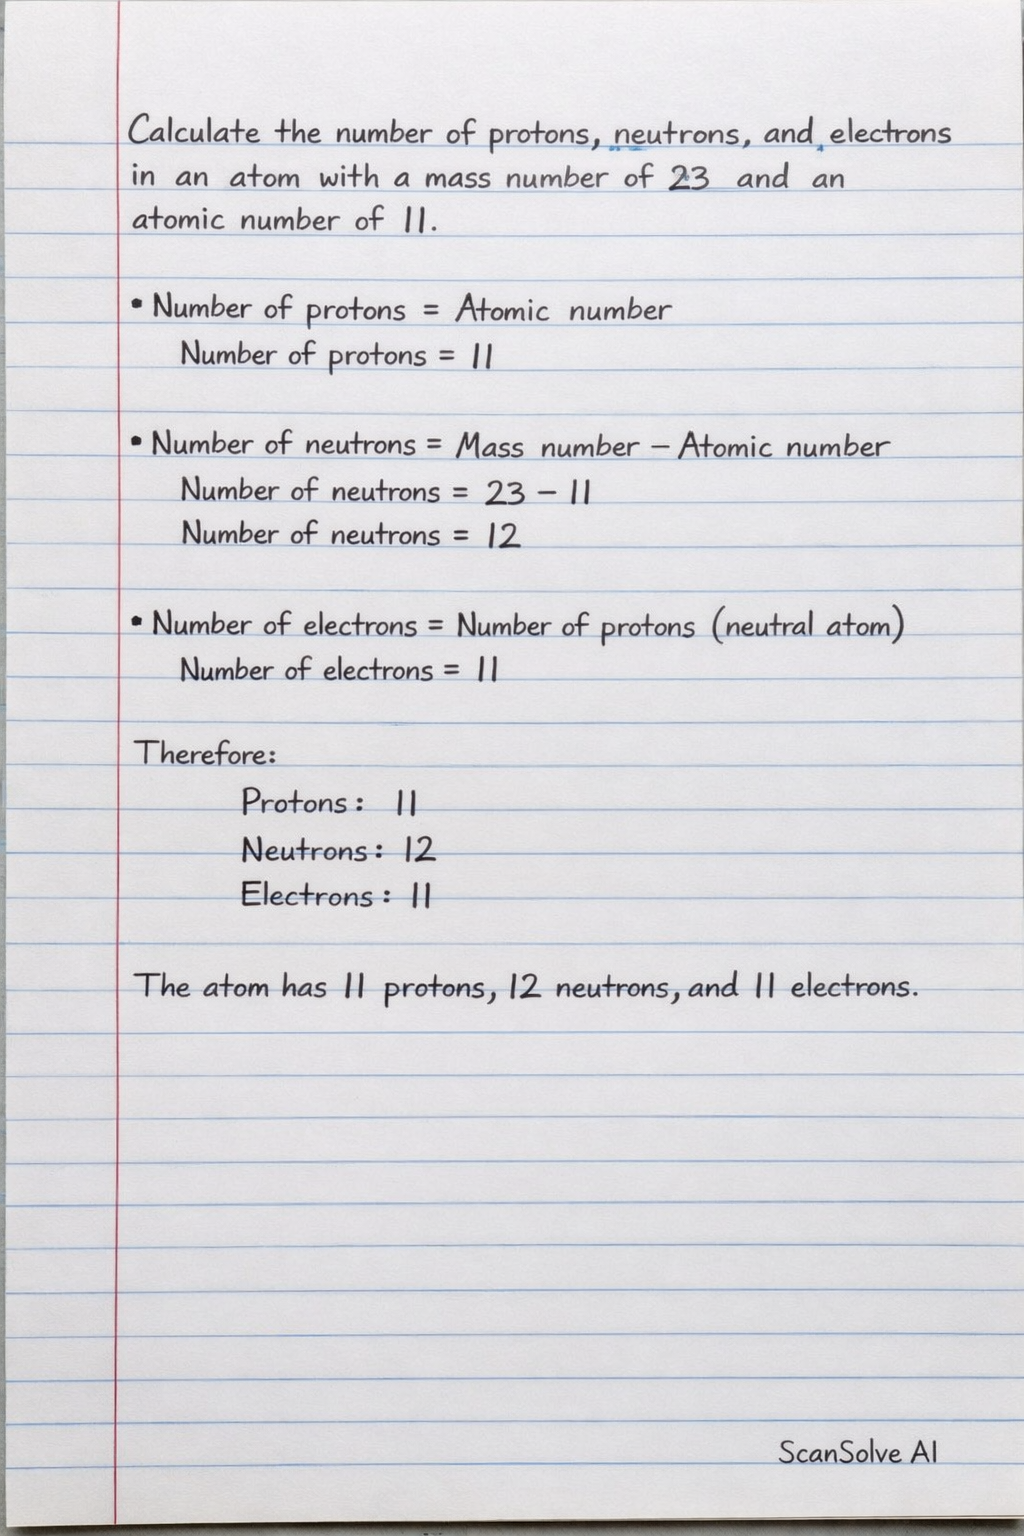 Calculate the number of protons, neutrons, and, electrons
in an atom with a mass number of 23 and an
atomic number of 11.
• Number of protons = Atomic number
Number of protons = 11
• Number of neutrons = Mass number – Atomic number
Number of neutrons = 23 – 11
Number of neutrons = 12
• Number of electrons = Number of protons (neutral atom)
Number of electrons = 11
Therefore:
Protons: 11
Neutrons: 12
Electrons: 11
The atom has 11 protons, 12 neutrons, and 11 electrons.
ScanSolve AI